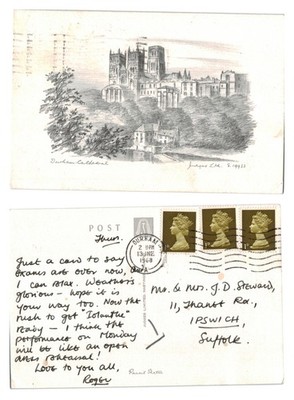 Durham Cathedral
POST
Thurs.
Just a card to say
exams are over now, and
I can relax. Weather's
glorious – hope it is
your way too. Now the
rush to get "Iolanthe"
ready – I think the
performance on Monday
will be like an open
dress rehearsal!
Love to you all,
Roger
DURHAM
2 PM
13 JNE
1968
Mr. & Mrs. J. D. Steward,
11, Thanet Rd.,
IPSWICH,
Suffolk.